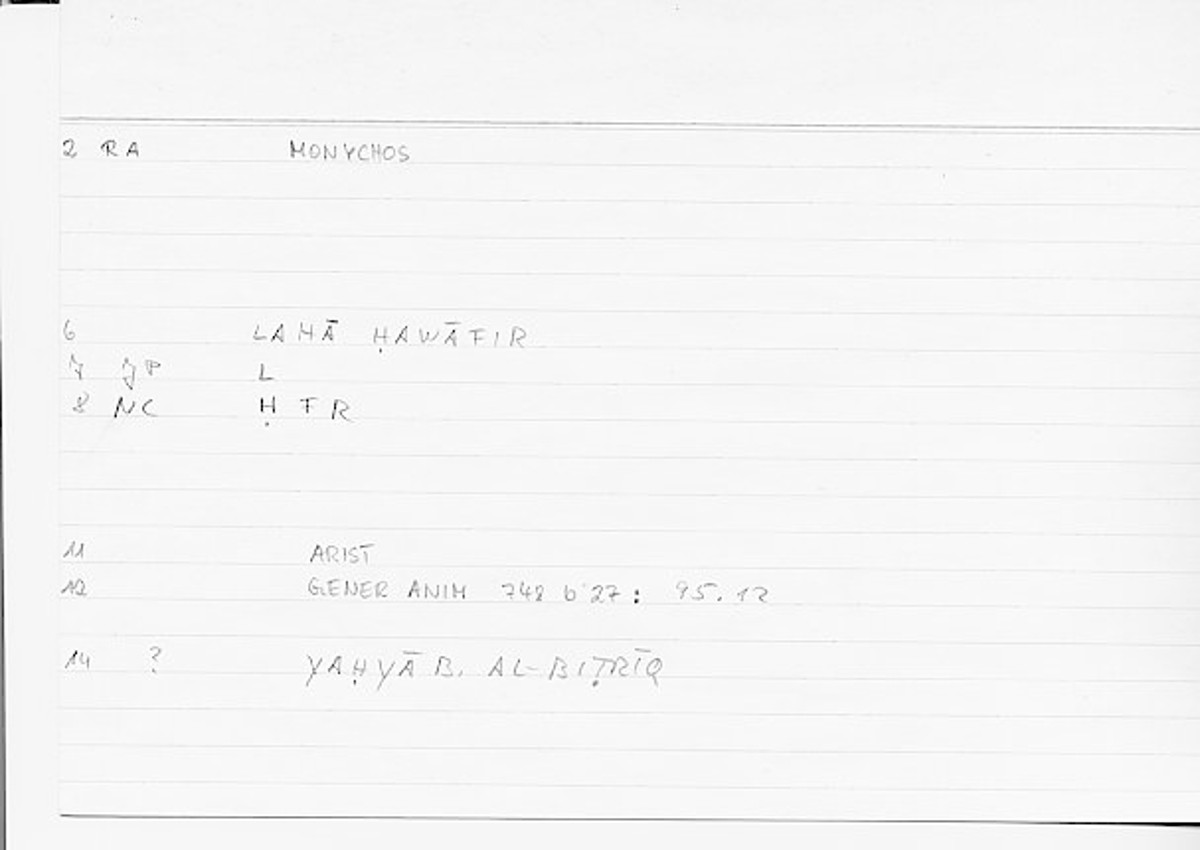 2 RA MONYCHOS
6 LAHĀ ḤAWĀFIR
7 JP L
8 NC Ḥ F R
11 ARIST
12 GENER ANIM 748 b 27 : 95.12
14 ? YAḤYĀ B. AL-BIṬRĪQ